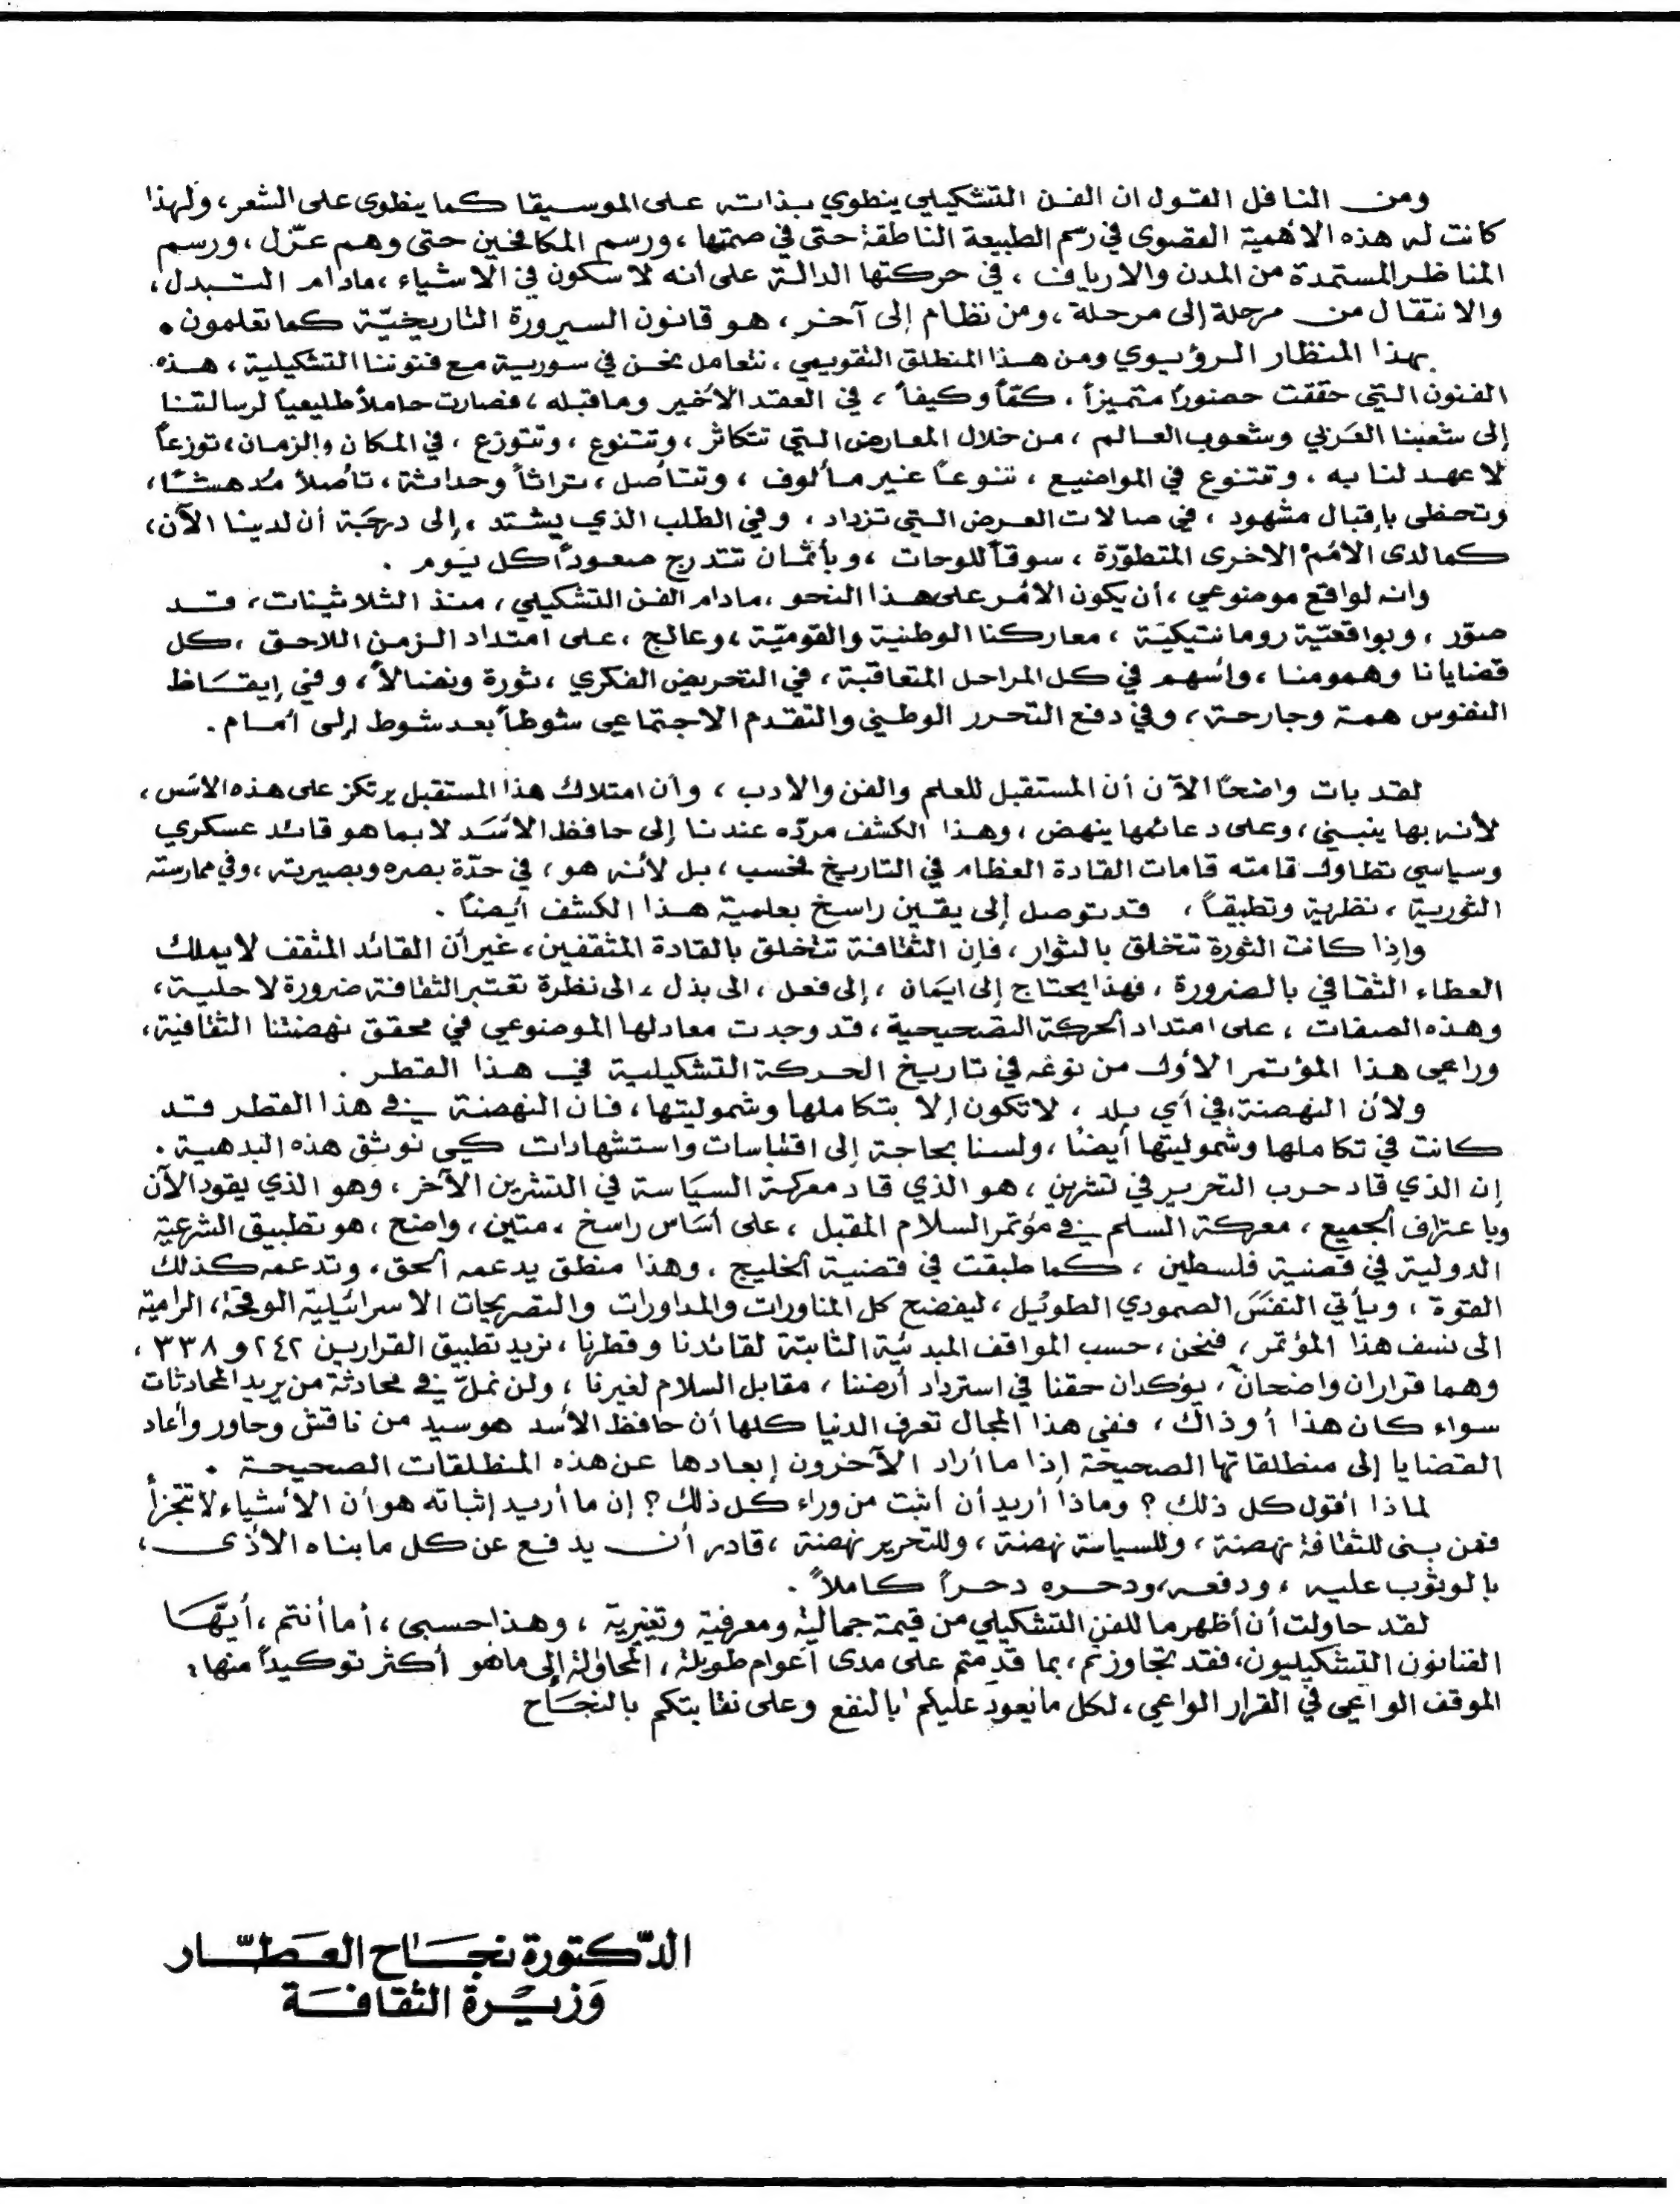 ومن النافل القول ان الفن التشكيلي ينطوي بذاته على الموسيقا كما ينطوى على الشعر، ولهذا
كانت له هذه الأهمية القصوى في رسم الطبيعة الناطقة حتى في صمتها، ورسم المكافحين حتى وهم عزّل، ورسم
المناظر المستمدة من المدن والارياف، في حركتها الدالة على أنه لا سكون في الاشياء، مادام التبدل،
والانتقال من مرحلة إلى مرحلة، ومن نظام إلى آخر، هو قانون السيرورة التاريخيّة كما تعلمون.
بهذا المنظار الرؤيوي ومن هذا المنطلق التقويمي، نتعامل نحن في سورية مع فنوننا التشكيلية، هذه
الفنون التي حققت حضوراً متميزاً، كمّاً وكيفاً، في العقد الأخير وماقبله، فصارت حاملاً طليعياً لرسالتنا
إلى شعبنا العربي وشعوب العالم، من خلال المعارض التي تتكاثر، وتتنوع، وتتوزع، في المكان والزمان، توزعاً
لا عهد لنا به، وتتنوع في المواضيع، تنوعاً غير مألوف، وتتأصل، تراثاً وحداثة، تأصلاً مدهشاً،
وتحظى بإقبال مشهود، في صالات العرض التي تزداد، وفي الطلب الذي يشتد، إلى درجة أن لدينا الآن،
كما لدى الأمم الاخرى المتطوّرة، سوقاً للوحات، وبأثمان تتدرج صعوداً كل يوم.
وانه لواقع موضوعي، أن يكون الأمر على هذا النحو، مادام الفن التشكيلي، منذ الثلاثينات، قد
صوّر، وبواقعيّة رومانتيكيّة، معاركنا الوطنية والقوميّة، وعالج، على امتداد الزمن اللاحق، كل
قضايانا وهمومنا، وأسهم في كل المراحل المتعاقبة، في التحريض الفكري، ثورة ونضالاً، وفي إيقاظ
النفوس همة وجارحة، وفي دفع التحرر الوطني والتقدم الاجتماعي شوطاً بعد شوط إلى أمام.
لقد بات واضحاً الآن أن المستقبل للعلم والفن والادب، وأن امتلاك هذا المستقبل يرتكز على هذه الأسس،
لأنه بها ينبني، وعلى دعائمها ينهض، وهذا الكشف مردّه عندنا إلى حافظ الأسد لا بما هو قائد عسكري
وسياسي تطاول قامته قامات القادة العظام في التاريخ فحسب، بل لأنه هو، في حدّة بصره وبصيرته، وفي ممارسته
الثورية، نظرية وتطبيقاً، قد توصل إلى يقين راسخ بعلمية هذا الكشف أيضاً.
وإذا كانت الثورة تتخلق بالثوار، فإن الثقافة تتخلق بالقادة المثقفين، غير أن القائد المثقف لا يملك
العطاء الثقافي بالضرورة، فهذا يحتاج إلى ايمان، إلى فعل، الى بذل، الى نظرة تعتبر الثقافة ضرورة لا حلية،
وهذه الصفات، على امتداد الحركة التصحيحية، قد وجدت معادلها الموضوعي في محقق نهضتنا الثقافية،
وراعي هذا المؤتمر الأول من نوعه في تاريخ الحركة التشكيلية في هذا القطر.
ولأن النهضة، في أي بلد، لا تكون إلا بتكاملها وشموليتها، فان النهضة في هذا القطر قد
كانت في تكاملها وشموليتها أيضاً، ولسنا بحاجة إلى اقتباسات واستشهادات كي نوثق هذه البدهية.
إن الذي قاد حرب التحرير في تشرين، هو الذي قاد معركة السياسة في التشرين الآخر، وهو الذي يقود الآن
وباعتراف الجميع، معركة السلم في مؤتمر السلام المقبل، على أساس راسخ، متين، واضح، هو تطبيق الشرعية
الدولية في قضية فلسطين، كما طبقت في قضية الخليج، وهذا منطق يدعمه الحق، وتدعمه كذلك
القوة، ويأتي النفس الصمودي الطويل، ليفضح كل المناورات والمداورات والتصريحات الاسرائيلية الوقحة، الرامية
الى نسف هذا المؤتمر، فنحن، حسب المواقف المبدئية الثابتة لقائدنا وقطرنا، نريد تطبيق القرارين ٢٤٢ و ٣٣٨،
وهما قراران واضحان، يؤكدان حقنا في استرداد أرضنا، مقابل السلام لغيرنا، ولن نملّ في محادثة من يريد المحادثات
سواء كان هذا أو ذاك، ففي هذا المجال تعرف الدنيا كلها أن حافظ الأسد هو سيد من ناقش وحاور وأعاد
القضايا إلى منطلقاتها الصحيحة إذا ما أراد الآخرون إبعادها عن هذه المنطلقات الصحيحة.
لماذا أقول كل ذلك؟ وماذا أريد أن أثبت من وراء كل ذلك؟ إن ما أريد إثباته هو أن الأشياء لا تتجزأ
فمن بنى للثقافة نهضة، وللسياسة نهضة، وللتحرير نهضة، قادر أن يدفع عن كل ما بناه الأذى،
بالوثوب عليه، ودفعه، ودحره دحراً كاملاً.
لقد حاولت أن أظهر ما للفن التشكيلي من قيمة جمالية ومعرفية وتغييرية، وهذا حسبي، أما أنتم، أيها
الفنانون التشكيليون، فقد تجاوزتم، بما قدمتم على مدى أعوام طويلة، المحاولة إلى ماهو أكثر توكيداً منها:
الموقف الواعي في القرار الواعي، لكل ما يعود عليكم بالنفع وعلى نقابتكم بالنجاح
الدّكتورة نجاح العطّار
وزيرة الثقافة